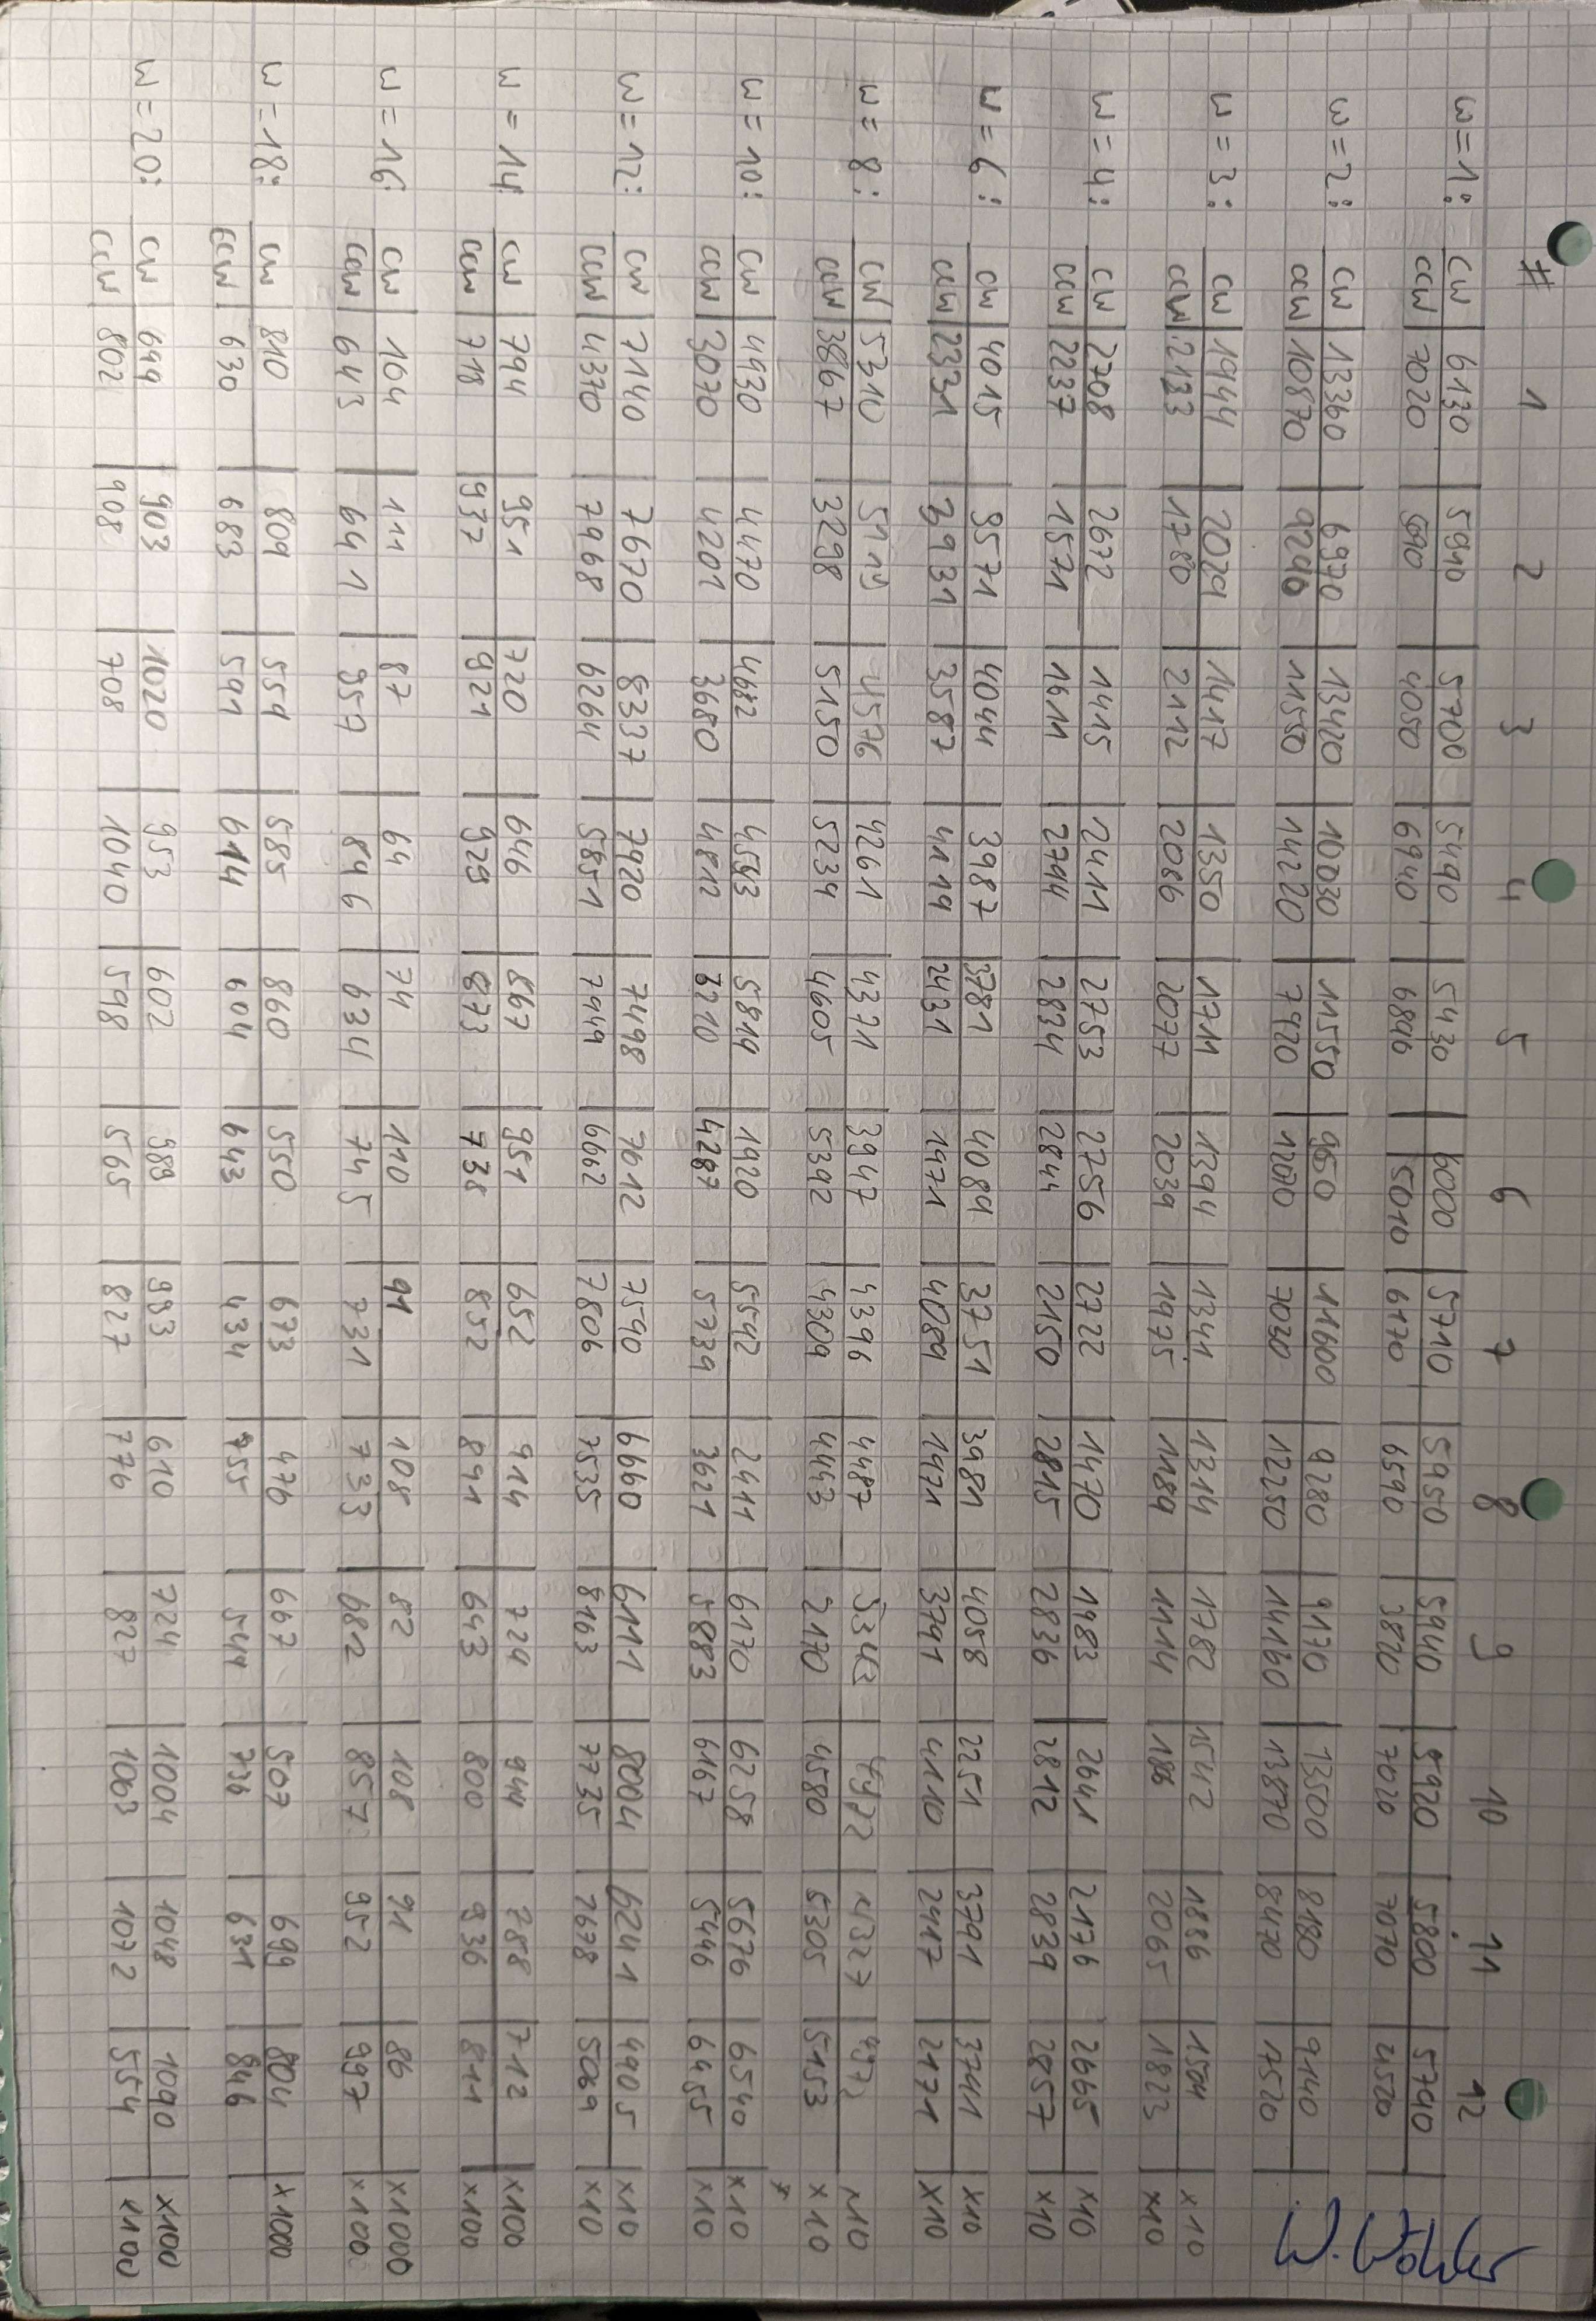 # 1 2 3 4 5 6 7 8 9 10 11 12
w=1: cw | 6130 | 5910 | 5700 | 5490 | 5430 | 6000 | 5710 | 5950 | 5940 | 5920 | 5800 | 5740
ccw | 7020 | 4050 | 6940 | 6846 | 5010 | 6170 | 6590 | 3820 | 7020 | 7070 | 4520
w=2: cw | 13360 | 6970 | 13420 | 10030 | 11550 | 950 | 11600 | 9280 | 9170 | 13500 | 8180 | 9140
ccw | 10870 | 9246 | 11550 | 14220 | 7420 | 7030 | 12250 | 14160 | 13870 | 8470 | 7520
w=3: cw | 1944 | 2029 | 1417 | 1350 | 1711 | 1394 | 1341 | 1314 | 1782 | 1542 | 1886 | 1504 | x10
ccw | 2133 | 1780 | 2112 | 2086 | 2077 | 2039 | 1975 | 1189 | 1114 | 186 | 2065 | 1823 | x10
w=4: cw | 2708 | 2672 | 1415 | 2411 | 2753 | 2756 | 2722 | 1470 | 1983 | 2641 | 2176 | 2665 | x10
ccw | 2237 | 1571 | 1611 | 2744 | 2834 | 2844 | 2150 | 2815 | 2836 | 2812 | 2839 | 2857 | x10
w=6: cw | 4015 | 3571 | 4044 | 3987 | 3781 | 4084 | 3751 | 3981 | 4058 | 2251 | 3791 | 3741 | x10
ccw | 2331 | 3931 | 3587 | 4119 | 2431 | 1971 | 4089 | 1971 | 3791 | 4110 | 2417 | 2171 | x10
w=8: cw | 5310 | 4576 | 4261 | 4371 | 3947 | 4396 | 4487 | 5343 | 4972 | 4327 | 4972 | x10
ccw | 3867 | 3298 | 5150 | 5234 | 4605 | 5392 | 4309 | 4443 | 2170 | 4580 | 5305 | 5153 | x10
w=10: cw | 4930 | 4470 | 4682 | 4543 | 5814 | 1920 | 5542 | 2411 | 6170 | 6258 | 5676 | 6540 | x10
ccw | 3070 | 4201 | 3680 | 4812 | 3210 | 4287 | 5739 | 3621 | 5883 | 6167 | 5446 | 6455 | x10
w=12: cw | 7140 | 7670 | 8337 | 7920 | 7498 | 7612 | 7590 | 6660 | 6111 | 8004 | 6241 | 4905 | x10
ccw | 4370 | 7968 | 6264 | 5851 | 7949 | 6662 | 7806 | 7535 | 8163 | 7735 | 7678 | 5069 | x10
w=14: cw | 794 | 951 | 720 | 646 | 867 | 951 | 652 | 914 | 724 | 944 | 788 | 712 | x100
ccw | 718 | 937 | 921 | 929 | 873 | 738 | 852 | 891 | 643 | 800 | 936 | 811 | x100
w=16: cw | 104 | 111 | 87 | 64 | 74 | 110 | 91 | 108 | 82 | 108 | 91 | 86 | x1000
ccw | 645 | 641 | 957 | 896 | 634 | 745 | 731 | 733 | 682 | 857 | 952 | 997 | x100
w=18: cw | 810 | 809 | 559 | 585 | 860 | 550 | 673 | 476 | 667 | 507 | 699 | 804 | x1000
ccw | 630 | 683 | 591 | 614 | 604 | 643 | 434 | 755 | 544 | 736 | 631 | 846
w=20: cw | 649 | 903 | 1020 | 953 | 602 | 989 | 933 | 610 | 724 | 1004 | 1048 | 1090 | x100
ccw | 802 | 908 | 708 | 1040 | 598 | 565 | 827 | 776 | 827 | 1063 | 1072 | 554 | x100
W. Wöhler